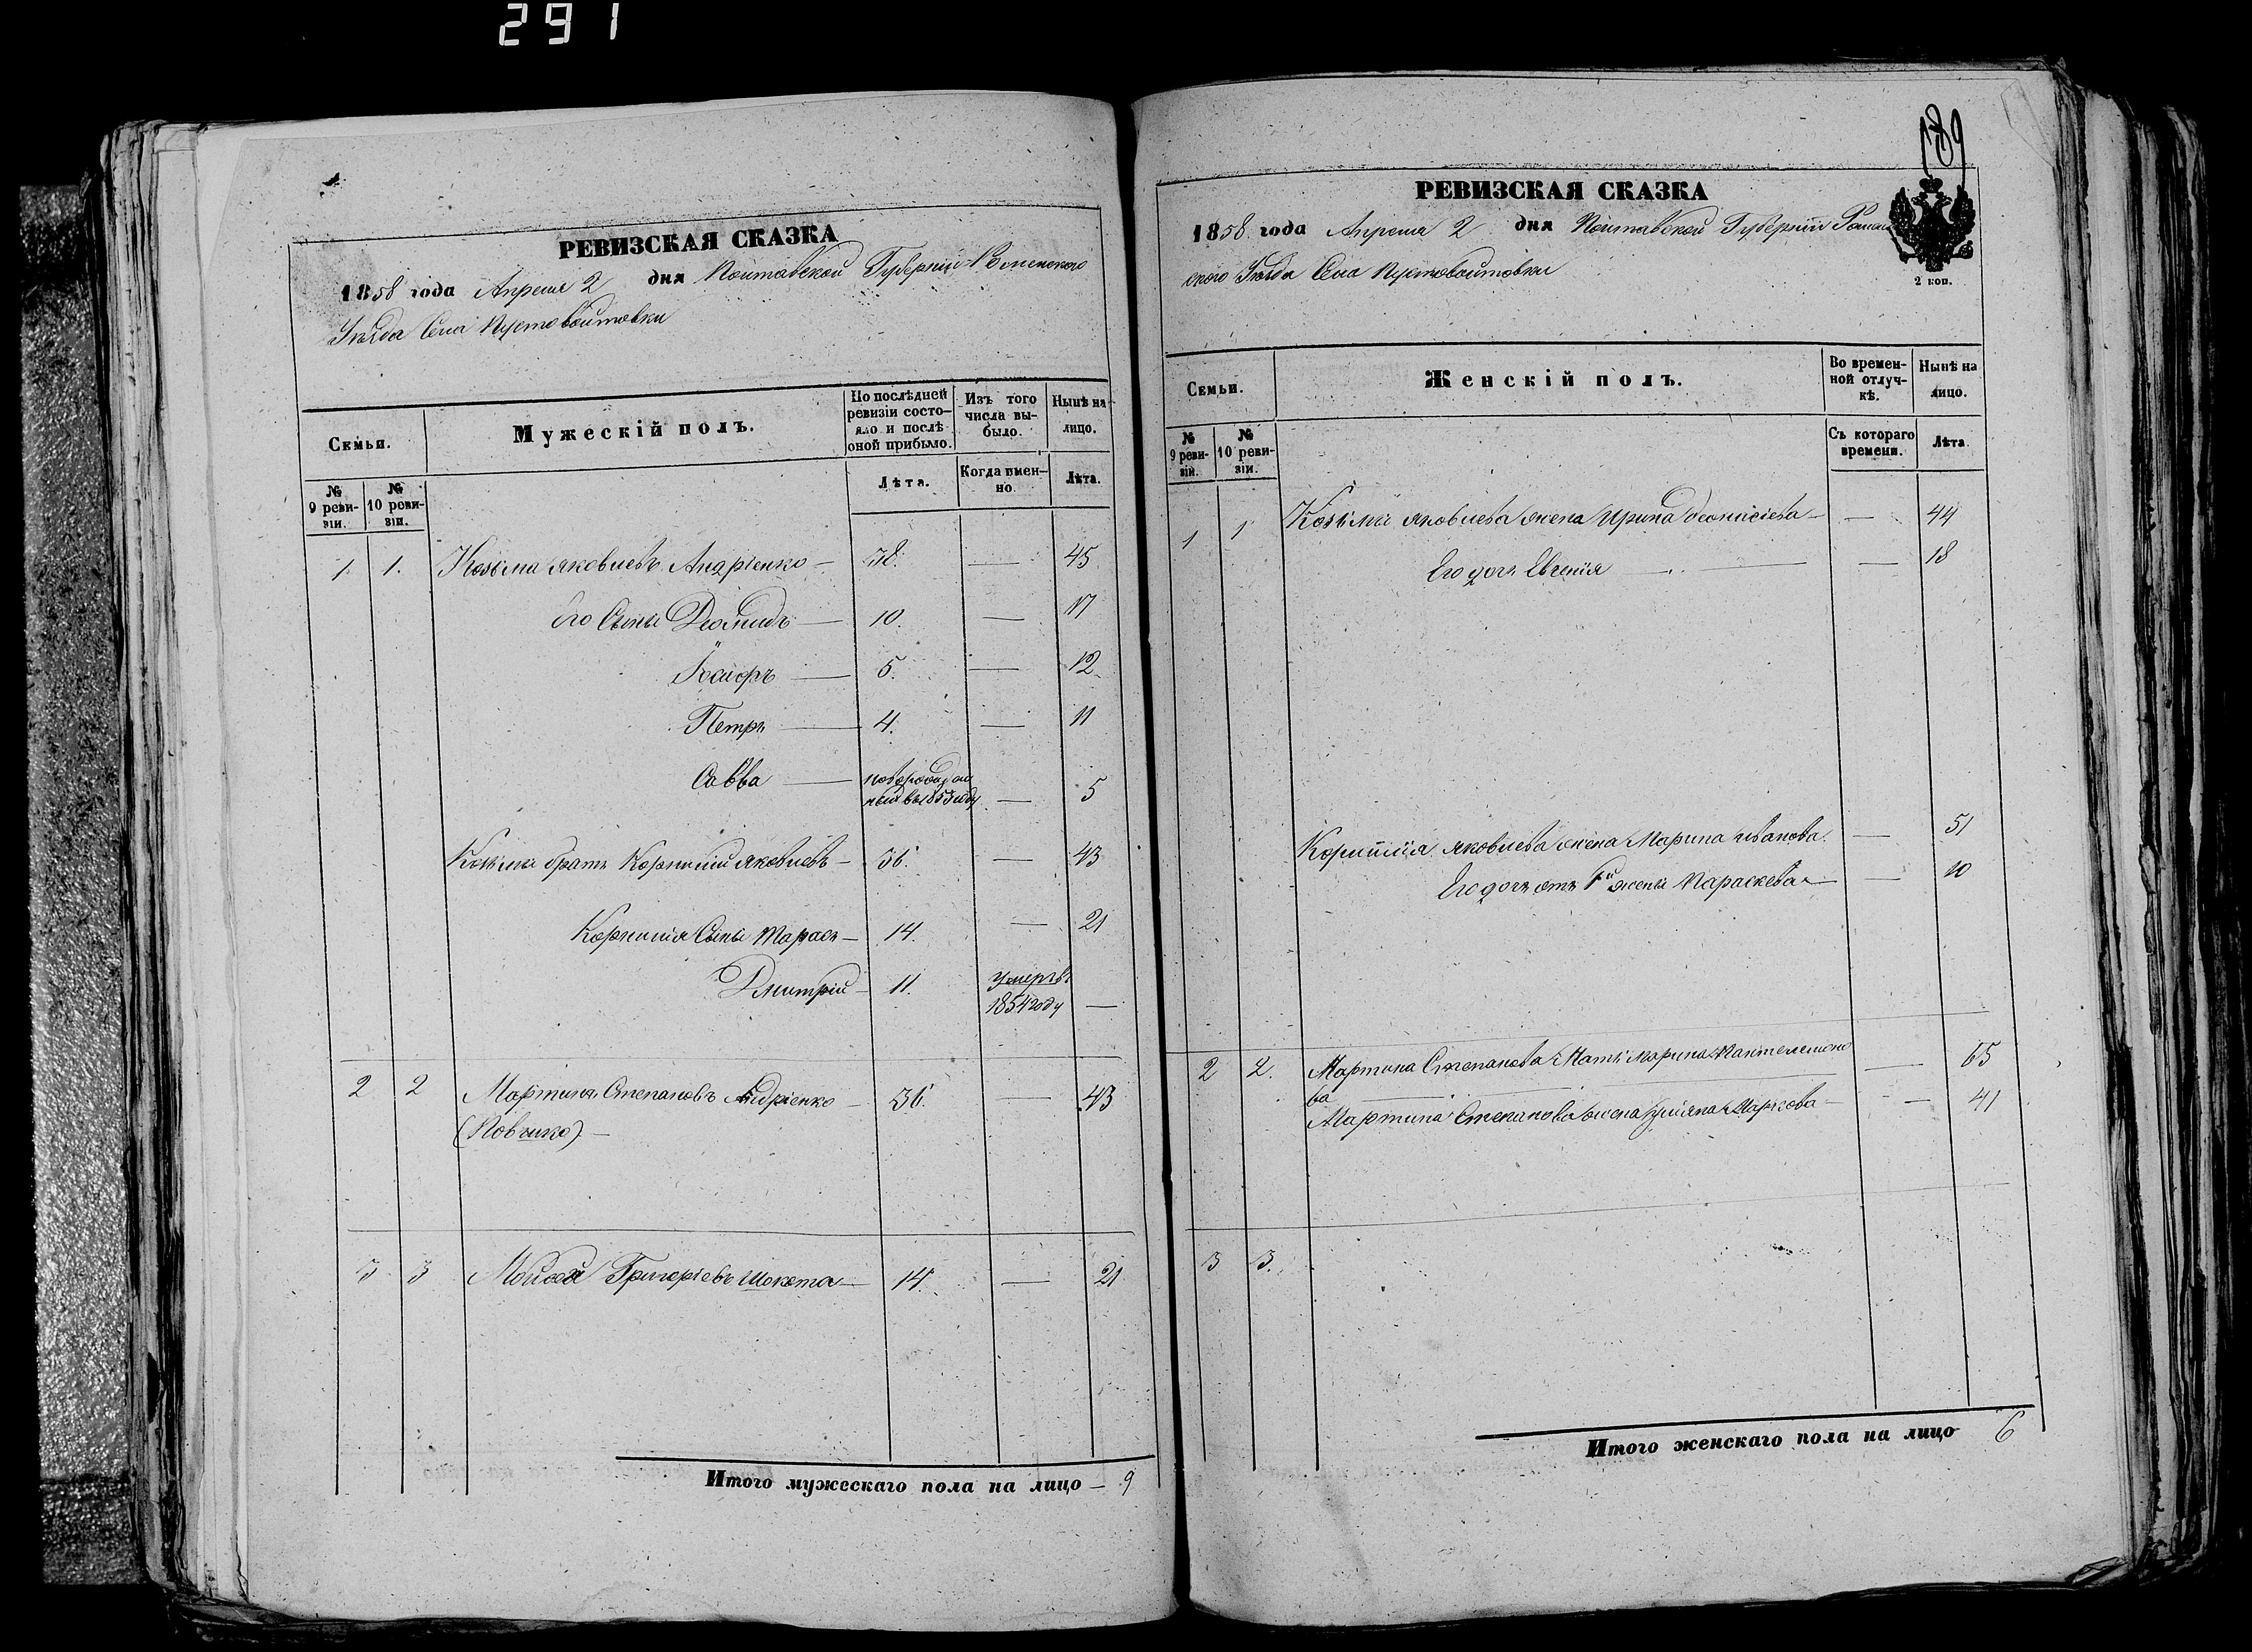 291
РЕВИЗСКАЯ СКАЗКА
1858 года Апреля 2 дня Полтавской Губерніи Роменского
Уѣзда Села Пустовойтовки
Семьи.
Мужескій полъ.
По послѣдней ревизіи состояло и послѣ оной прибыло.
Изъ того числа выбыло.
Нынѣ на лицо.
№ 9 ревизіи.
№ 10 ревизіи.
Лѣта.
Когда именно.
Лѣта.
1. 1. Козьма Яковлевъ Андріенко — 38. — 45
Его Сыны Діомидъ — 10. — 17
5. — 12
Петръ — 4. — 11
Савва — новорожден
ный въ 1853 году — 5
Козьмы братъ Корнилій Яковлевъ — 36. — 43
Корнилія Сыны Тарасъ — 14. — 21
Дмитрій — 11. Умеръ въ
1854 году —
2 2 Мартинъ Степановъ Андріенко — 36. — 43
(Повчико) —
3 3 Моисей Григоріевъ Шокота — 14. — 21
Итого мужескаго пола на лицо — 9
189
РЕВИЗСКАЯ СКАЗКА
1858 года Апреля 2 дня Полтавской Губерніи Ромен
ского Уѣзда Села Пустовойтовки
2 коп.
Семьи.
Женскій полъ.
Во временной отлучкѣ.
Нынѣ на лицо.
№ 9 ревизіи.
№ 10 ревизіи.
Съ котораго времени.
Лѣта.
1 1 Козьмы Яковлева жена Ирина Деонисіева — — 44
Его дочь Евгенія — — 18
Корнилія Яковлева жена Марина Иванова. — 51
Его дочь отъ 1й жены Параскева — — 10
2 2. Мартина Степанова Мать Марина Пантелемоно
ва — — 65
Мартина Степанова жена Уліяна Маркова — — 41
3 3.
Итого женскаго пола на лицо 6